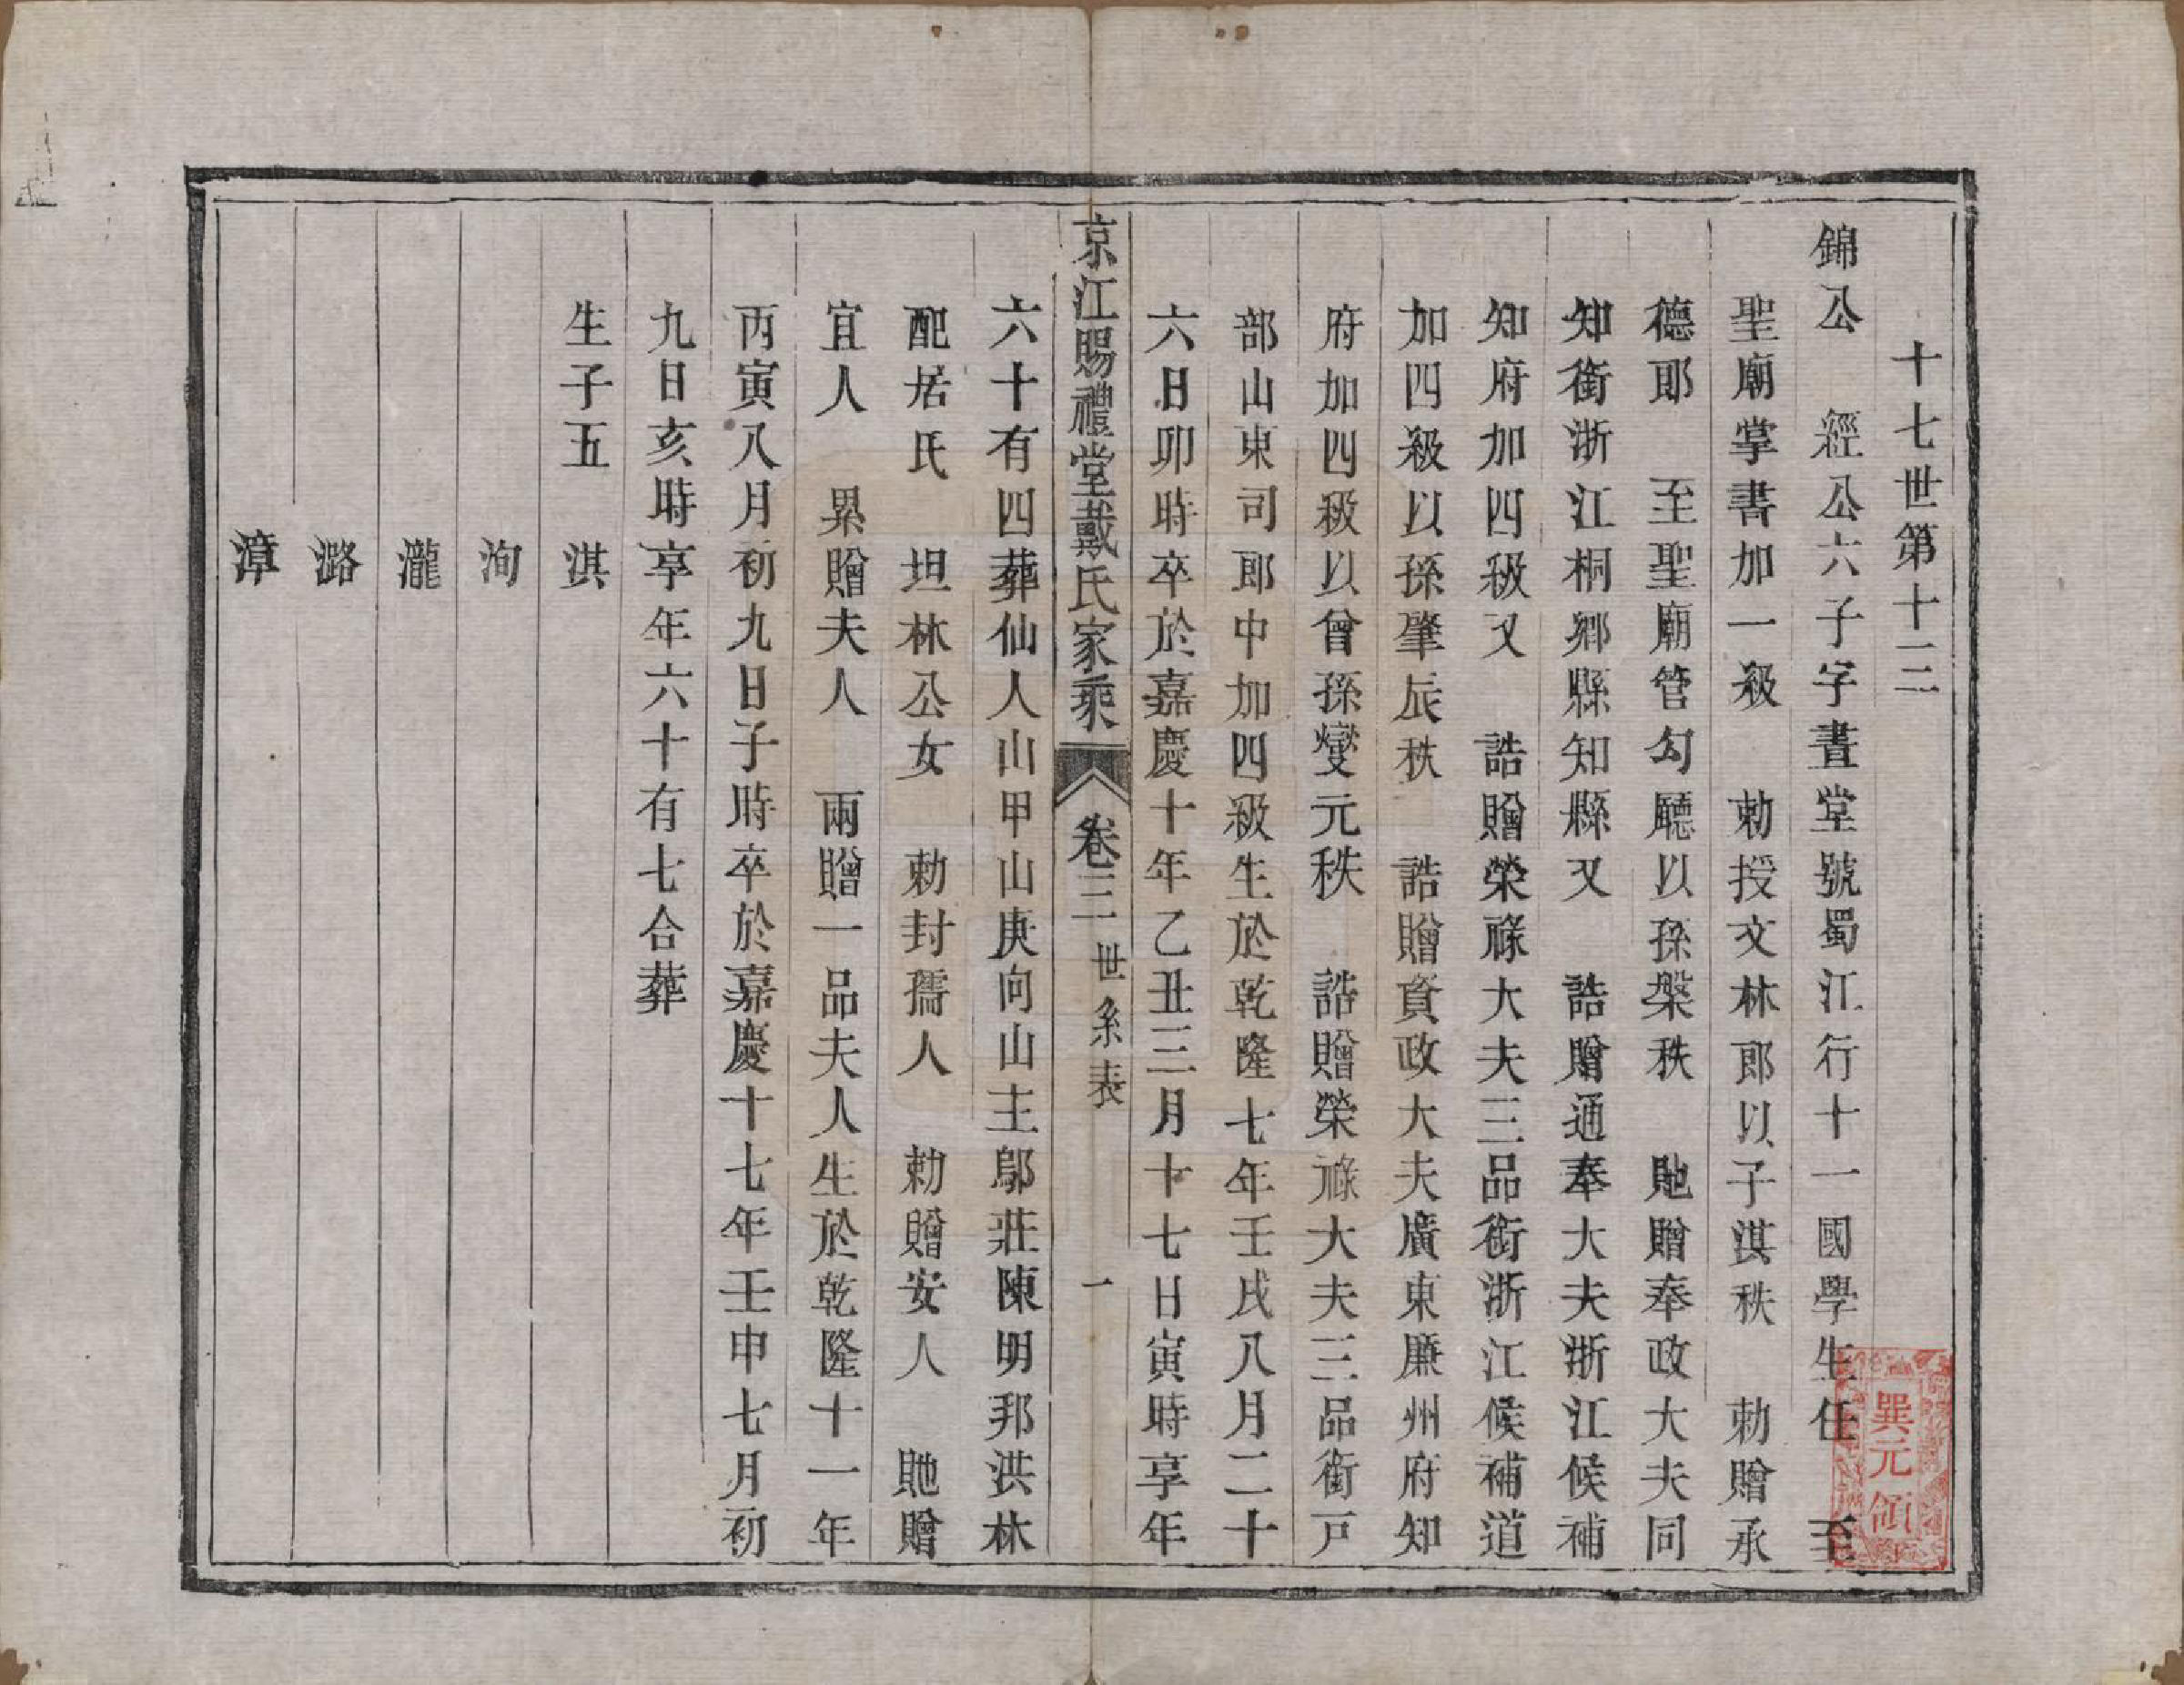 十七世第十三
錦公　經公六子字晝堂號蜀江行十一國學生任　至
聖廟掌書加一級　勅授文林郎以子淇秩　勅贈承
德郎　至聖廟管勾廳以孫槃秩　貤贈奉政大夫同
知銜浙江桐鄉縣知縣又　誥贈通奉大夫浙江候補
知府加四級又　誥贈榮祿大夫三品銜浙江候補道
加四級以孫肇辰秩　誥贈資政大夫廣東廉州府知
府加四級以曾孫燮元秩　誥贈榮祿大夫三品銜戸
部山東司郎中加四級生於乾隆七年壬戌八月二十
六日卯時卒於嘉慶十年乙丑三月十七日寅時享年
京江賜禮堂戴氏家乘　卷三　世系表　一
六十有四葬仙人山甲山庚向山主鄔莊陳明邦洪林
配𡊣氏　坦林公女　勅封孺人　勅贈安人　貤贈
宜人　累贈夫人　兩贈一品夫人生於乾隆十一年
丙寅八月初九日子時卒於嘉慶十七年壬申七月初
九日亥時享年六十有七合葬
生子五　淇
洵
瀧
潞
漳
巽元領